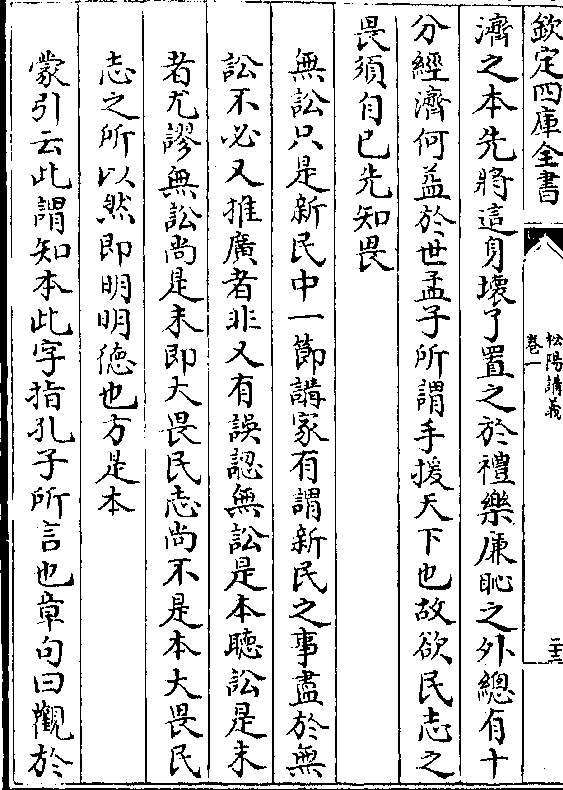 欽定四庫全書
松陽講義
卷一
二十三
濟之本先將這身壞了置之於禮樂廉恥之外總有十
分經濟何益於世孟子所謂手援天下也故欲民志之
畏須自已先知畏
無訟只是新民中一節講家有謂新民之事盡於無
訟不必又推廣者非又有誤認無訟是本聽訟是末
者尤謬無訟尚是末即大畏民志尚不是本大畏民
志之所以然即明明德也方是本
蒙引云此謂知本此字指孔子所言也章句曰觀於